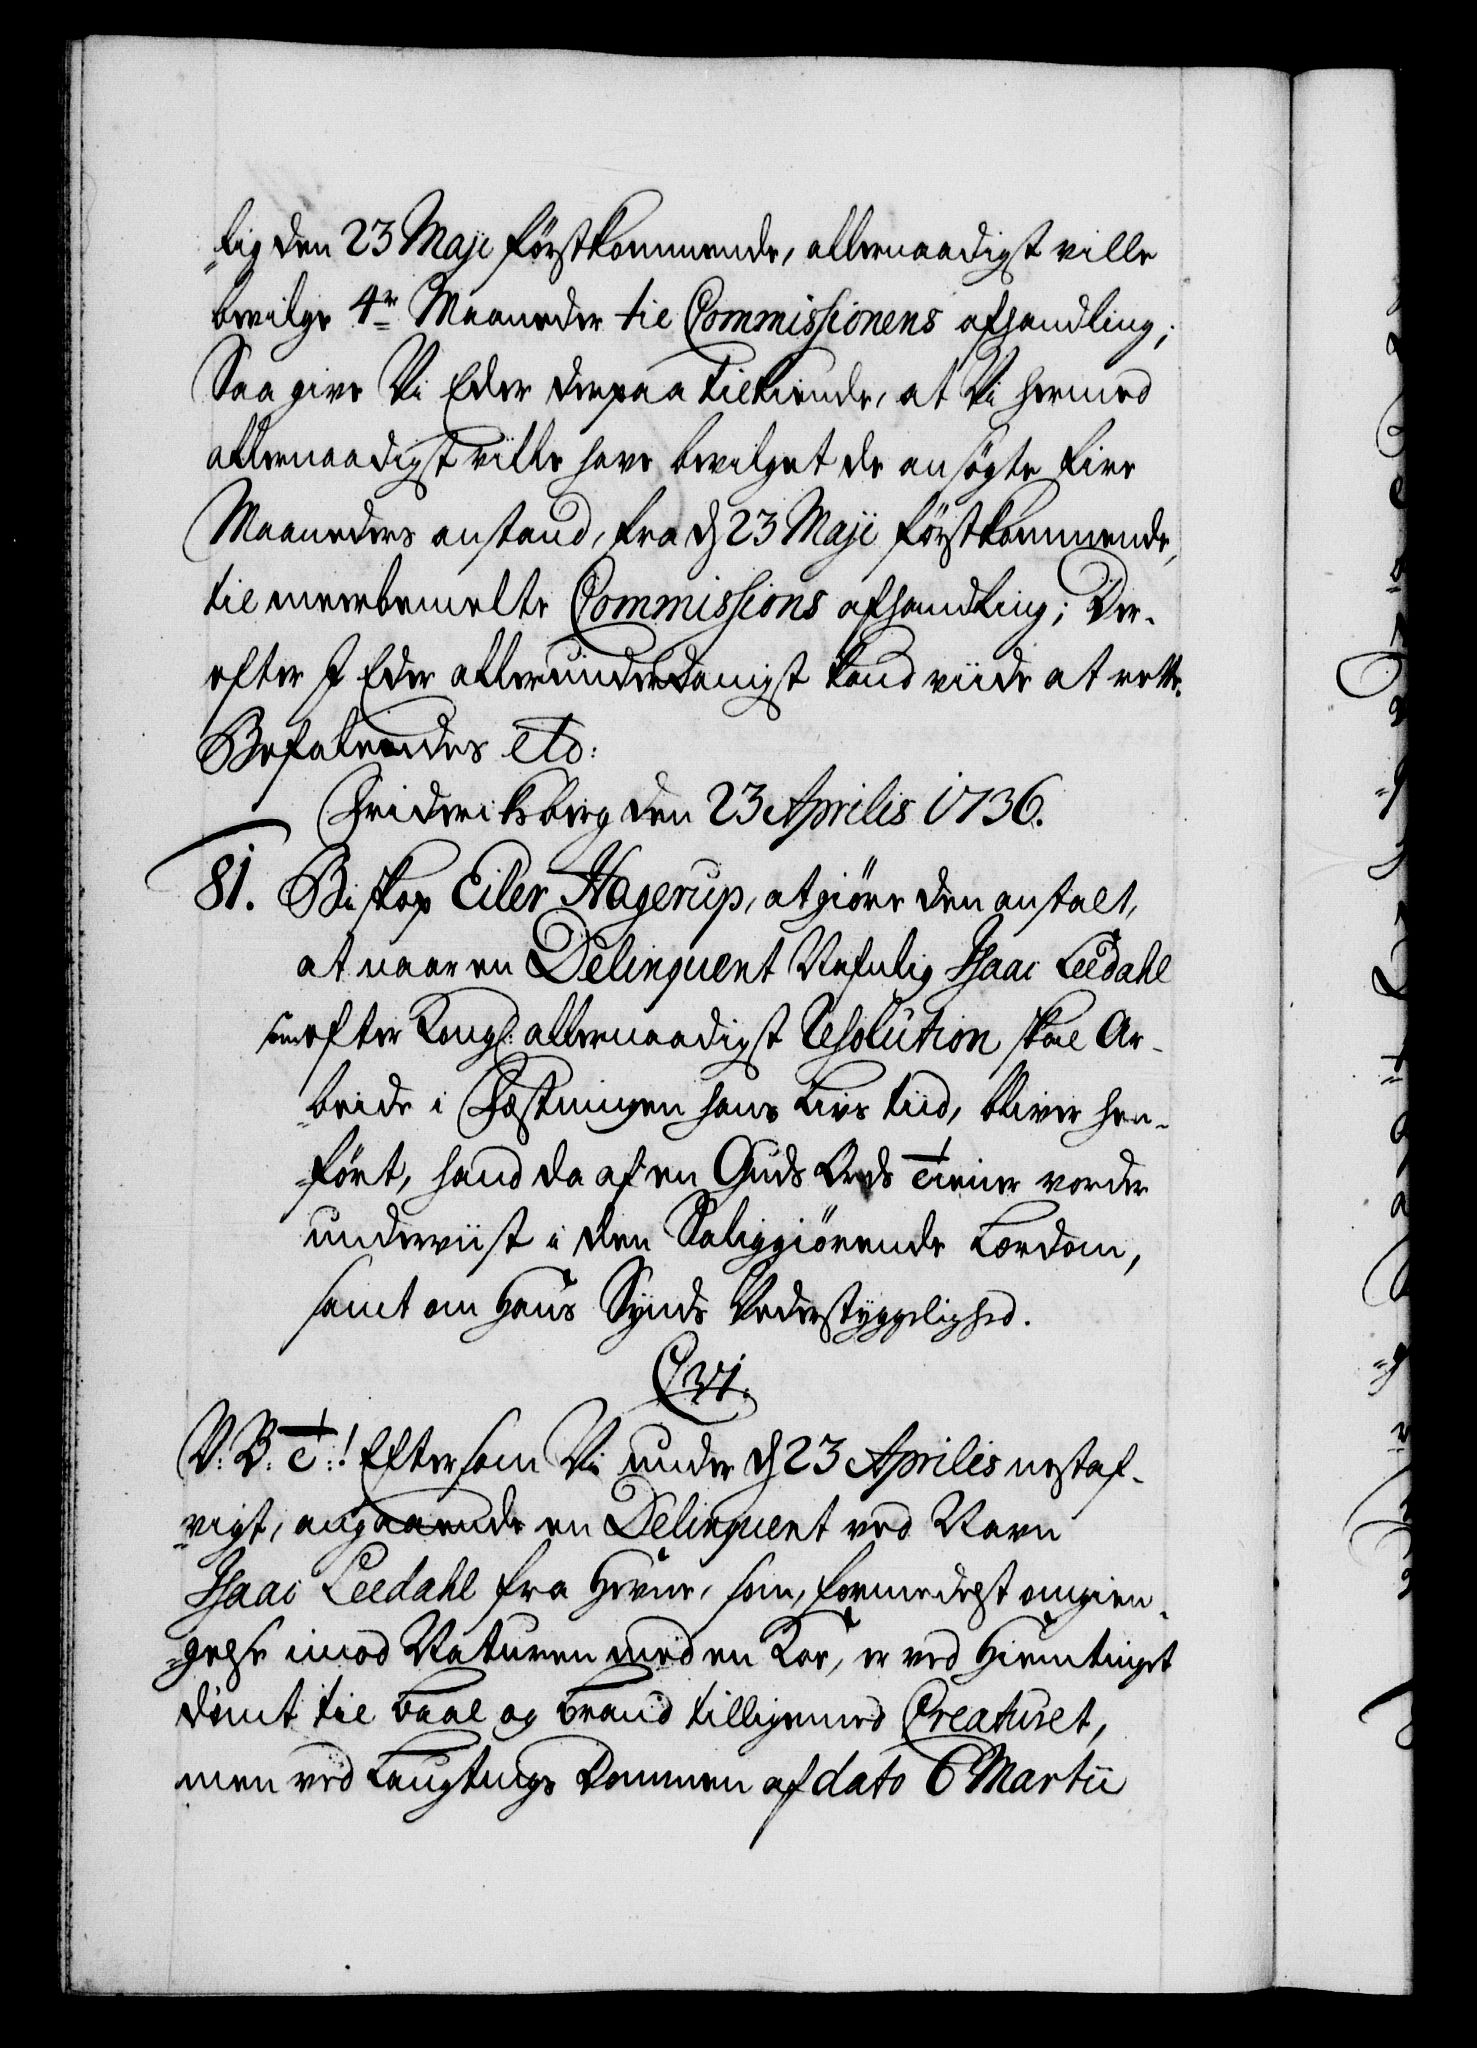 -lig den 23 Maji förstkommende, allernaadigst ville
bevilge 4re Maaneder til Commissionens afhandling;
Saa give Vi Eder derpaa tilkiende, at Vi hermed
allernaadigst ville have bevilget de ansögte fire
Maaneders anstand, fra d. 23 Maji förstkommende,
til meerbemelte Commissions afhandling; Der-
efter I Eder allerunderdanigst kand viide at rette.
Befalendes etc:
Friderichsberg den 23 Aprilis 1736.
81. Biskop Eiler Hagerup, at giöre den anstalt,
at naar en Delinquent Nafnlig Isaac Leedahl
som efter Kongl: allernaadigst Resolution skal Ar-
-beide i Fæstningen hans Livs tiid, bliver hen-
-fört, hand da af en Guds Ords Tiener vorder
underviist i den Saliggiörende Lærdom,
samt om hans Synds Vederstyggelighed.
C. VI.
V: B: T:! Eftersom Vi under d. 23 Aprilis nestaf-
-vigt, angaaende en Delinquent ved Navn
Isaac Leedahl fra Hevne, som, formedelst omgien-
-gelse imod Naturen med en Koe, er ved Hiemtinget
dömt til baal og brand tilligemed Creaturet,
men ved Laugtings Dommen af dato 6 Martii